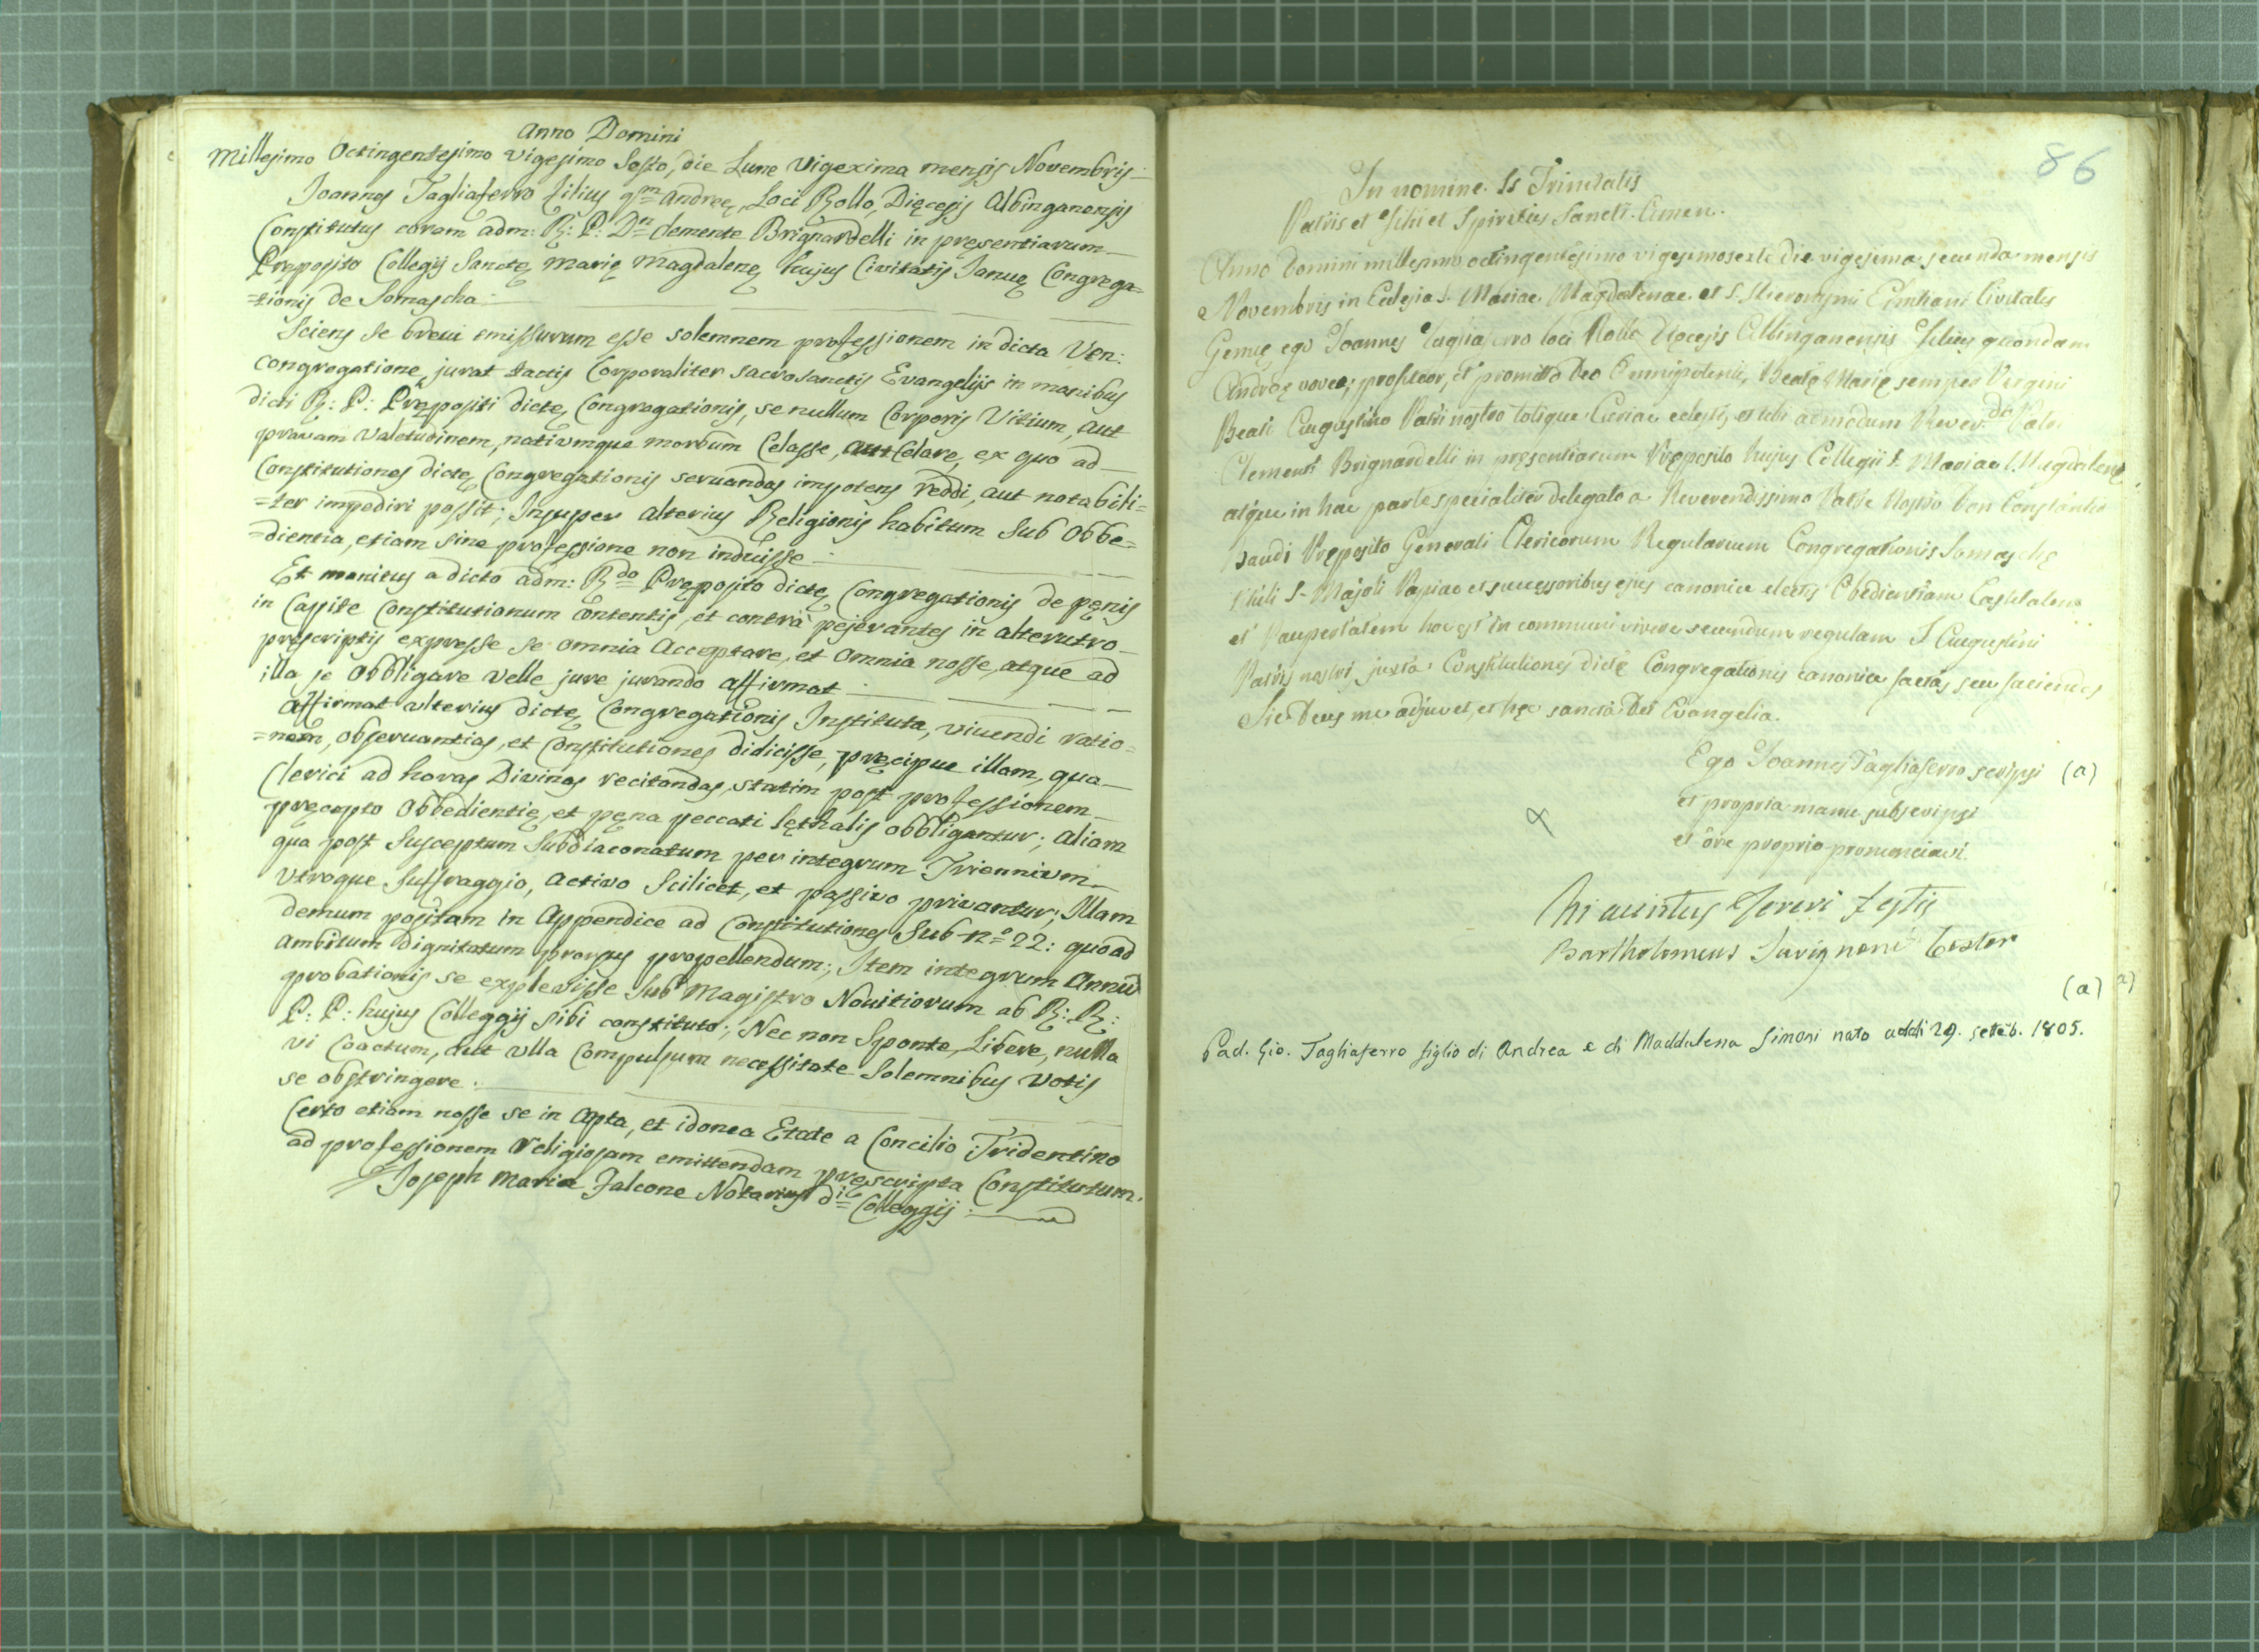 Anno Domini
Millesimo Octingentesimo Vigesimo Sesto, die Lune Vigexima mensis Novembris
Joannes Tagliaferro filius qm Andreę, Loci Rollo, Dięcesis Albinganensis
Constitutus coram adm: R: P: Dn Clemente Brignardelli in pręsentiarum
Pręposito Collegij Sanctę Marię Magdalenę hujus Civitatis Januę Congrega=
=tionis de Somascha
Sciens se brevi emissurum esse solemnem professionem in dicta Ven:
Congregatione, jurat tactis Corporaliter sacrosanctis Evangelijs in manibus
dicti R: P: Prępositi dictę Congregationis, se nullum Corporis Vitium, aut
pravam Valetudinem, nativumque morbum Celasse, aut Celare, ex quo ad
Constitutiones dictę Congregationis servandas impotens reddi, aut notabili=
=ter impediri possit; Insuper alterius Religionis habitum sub Obbe=
=dientia, etiam sine professione non induisse
Et monitus a dicto adm: Rdo Pręposito dictę Congregationis de pęnis
in Capite Constitutionum Contentis, et contrà pejerantes in alterutro
pręscriptis expresse se omnia Acceptare, et Omnia nosse, atque ad
illa se Obbligare Velle jure jurando affirmat
Affirmat ulterius dictę Congregationis Instituta, vivendi ratio=
=nem, observantias, et Constitutiones didicisse, pręcipue illam, qua
Clerici ad horas Divinas recitandas, statim post professionem
pręcepto Obbedientię, et pęna peccati lęthalis obbligantur; aliam
qua post susceptum Subdiaconatum per integrum Triennium
Utroque Suffraggio, activo Scilicet, et passivo privantur; Illam
demum positam in Appendice ad Constitutiones Sub no 22: quoad
ambitum dignitatum prorsus propellendum; Item integrum Annū
probationis se explevisse Sub Magistro Novitiorum ab R: R:
P: P: hujus Colleggij sibi constituto; Nec non Sponte, Libere, nulla
vi Coactum, aut ulla Compulsum necessitate Solemnibus Votis
se obstringere.
Certo etiam nosse se in Apta, et idonea Etate a Concilio Tridentino
ad professionem Religiosam emittendam pręscripta Constitutum.
Joseph Maria Falcone Notarius di Colleggij
86
In nomine Ss Trinitatis
Patris et Filii et Spiritus Sancti. Amen.
Anno Domini millesimo octingentesimo vigesimosexto die vigesima secunda mensis
Novembris in Eclesia S. Mariae Magdalenae et S. Hieronymi Emiliani Civitatis
Genuę ego Joannes Tagliaferro loci Rollo Diocesis Albinganensis Filius quondam
Andreę voveo, profiteor, et promitto Deo Omnipotenti, Beatę Marię semper Virgini
Beati Augustino Patri nostro totique Curiae celesti, et tibi admodum Reverdo Patri
Clementi Brignardelli in pręsentiarum Pręposito hujus Collegii S. Mariae Magdalenę
atque in hac parte specialiter delegato a Reverendissimo Patre Nostro Don Constantio
Praeposito Generali Clericorum Regularium Congregationis Somaschę
S. Majoli Papiae et successoribus ejus canonice electis Obedientiam Castitatem
et Paupertatem hoc est in communi vivere secundum regulam S. Augustini
Patris nostri, juxta Constitutiones dictę Congregationis canonice factas seu faciendas
Sic Deus me adjuvet, et hęc sancta Dei Evangelia.
Ego Joannes Tagliaferro scripsi (a)
et propria manu subscripsi
et ore proprio pronunciavi.
testis
Bartholomeus Savignoni Testor
(a)
Pad. Gio. Tagliaferro figlio di Andrea e di Maddalena Simoni nato addi 29. seteb. 1805.